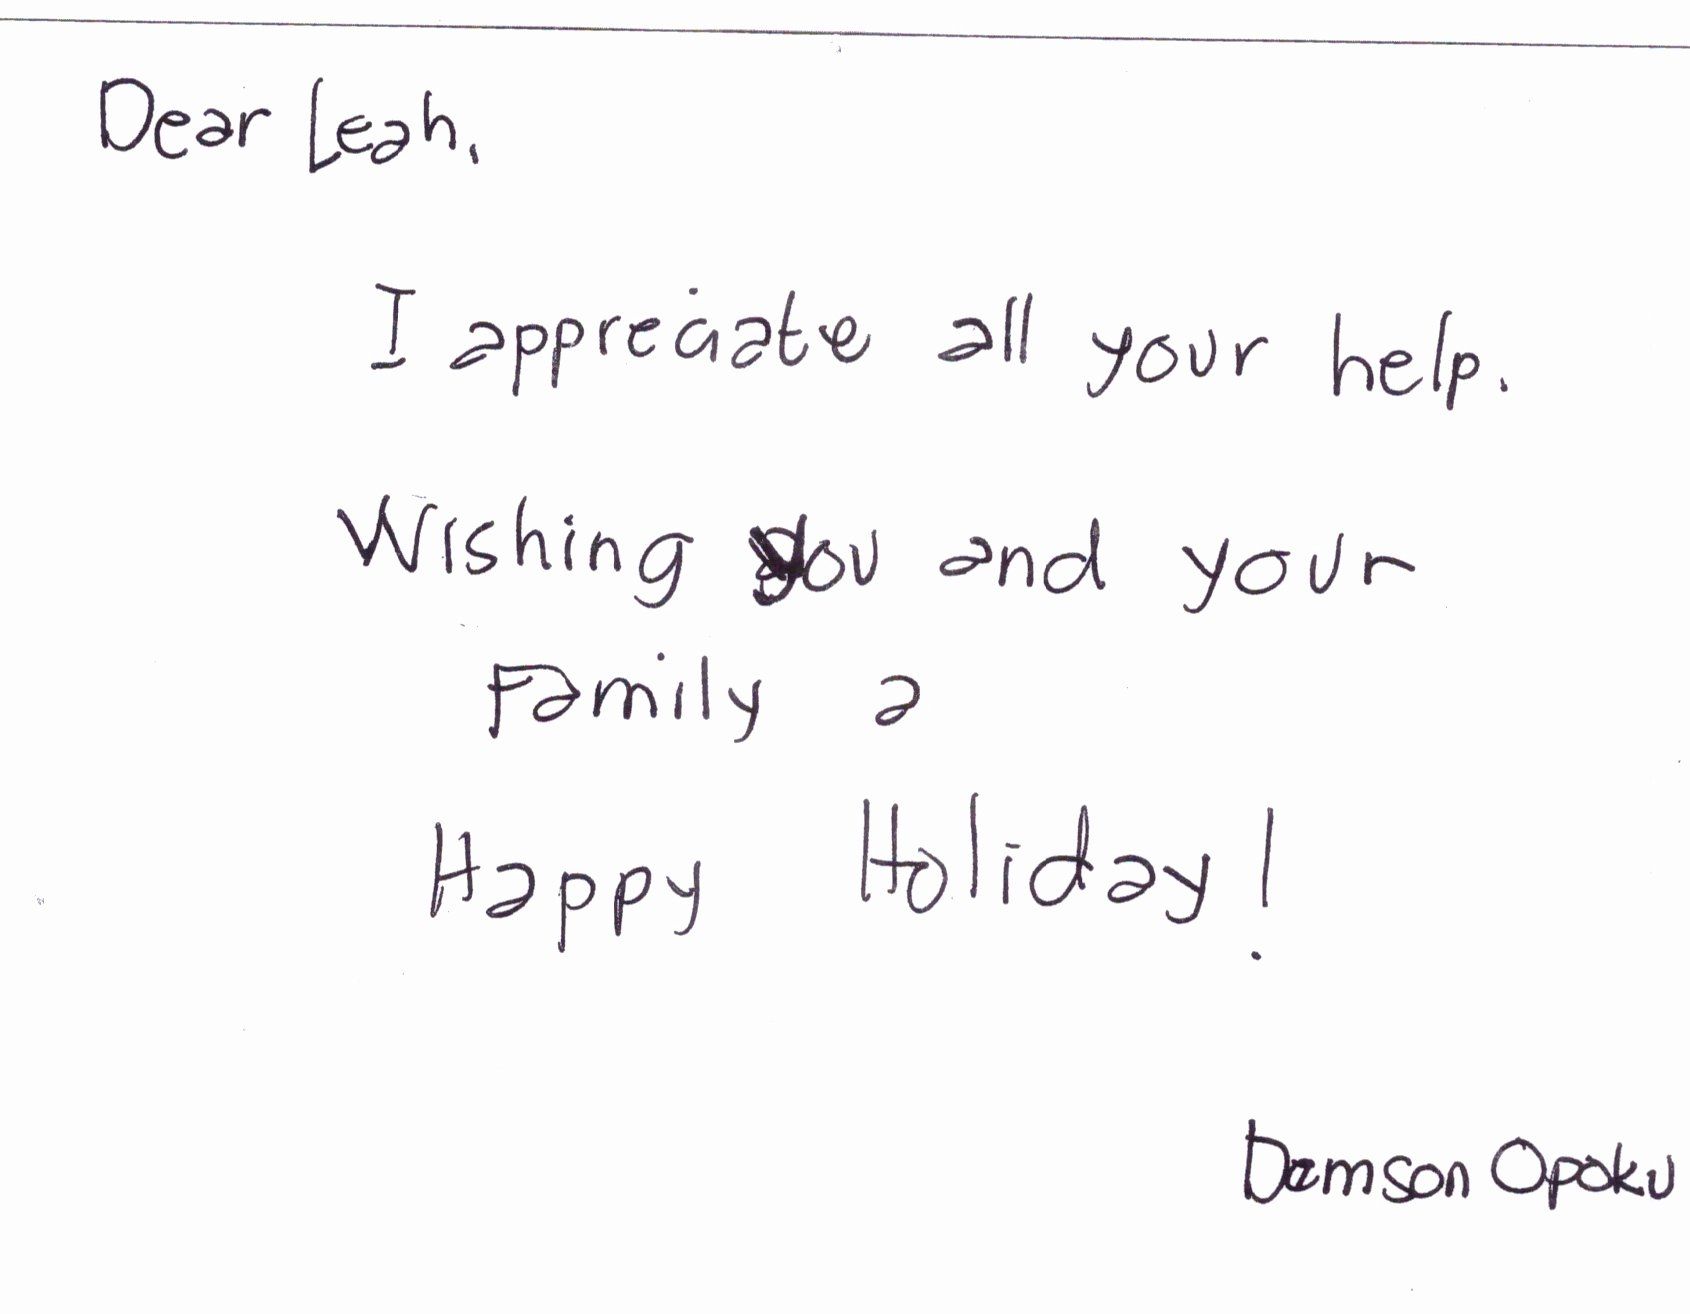 Dear Leah,
I appreciate all your help.
Wishing you and your
Family a
Happy Holiday!
Damson Opoku